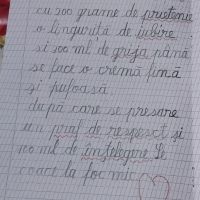 cu 200 grame de prietenie
o linguriță de iubire
și 100 ml de grija până
se face o cremă fină
și pufoasă
după care se presare
un praf de respect și
100 ml de înțelegere. Se
coace la foc mic